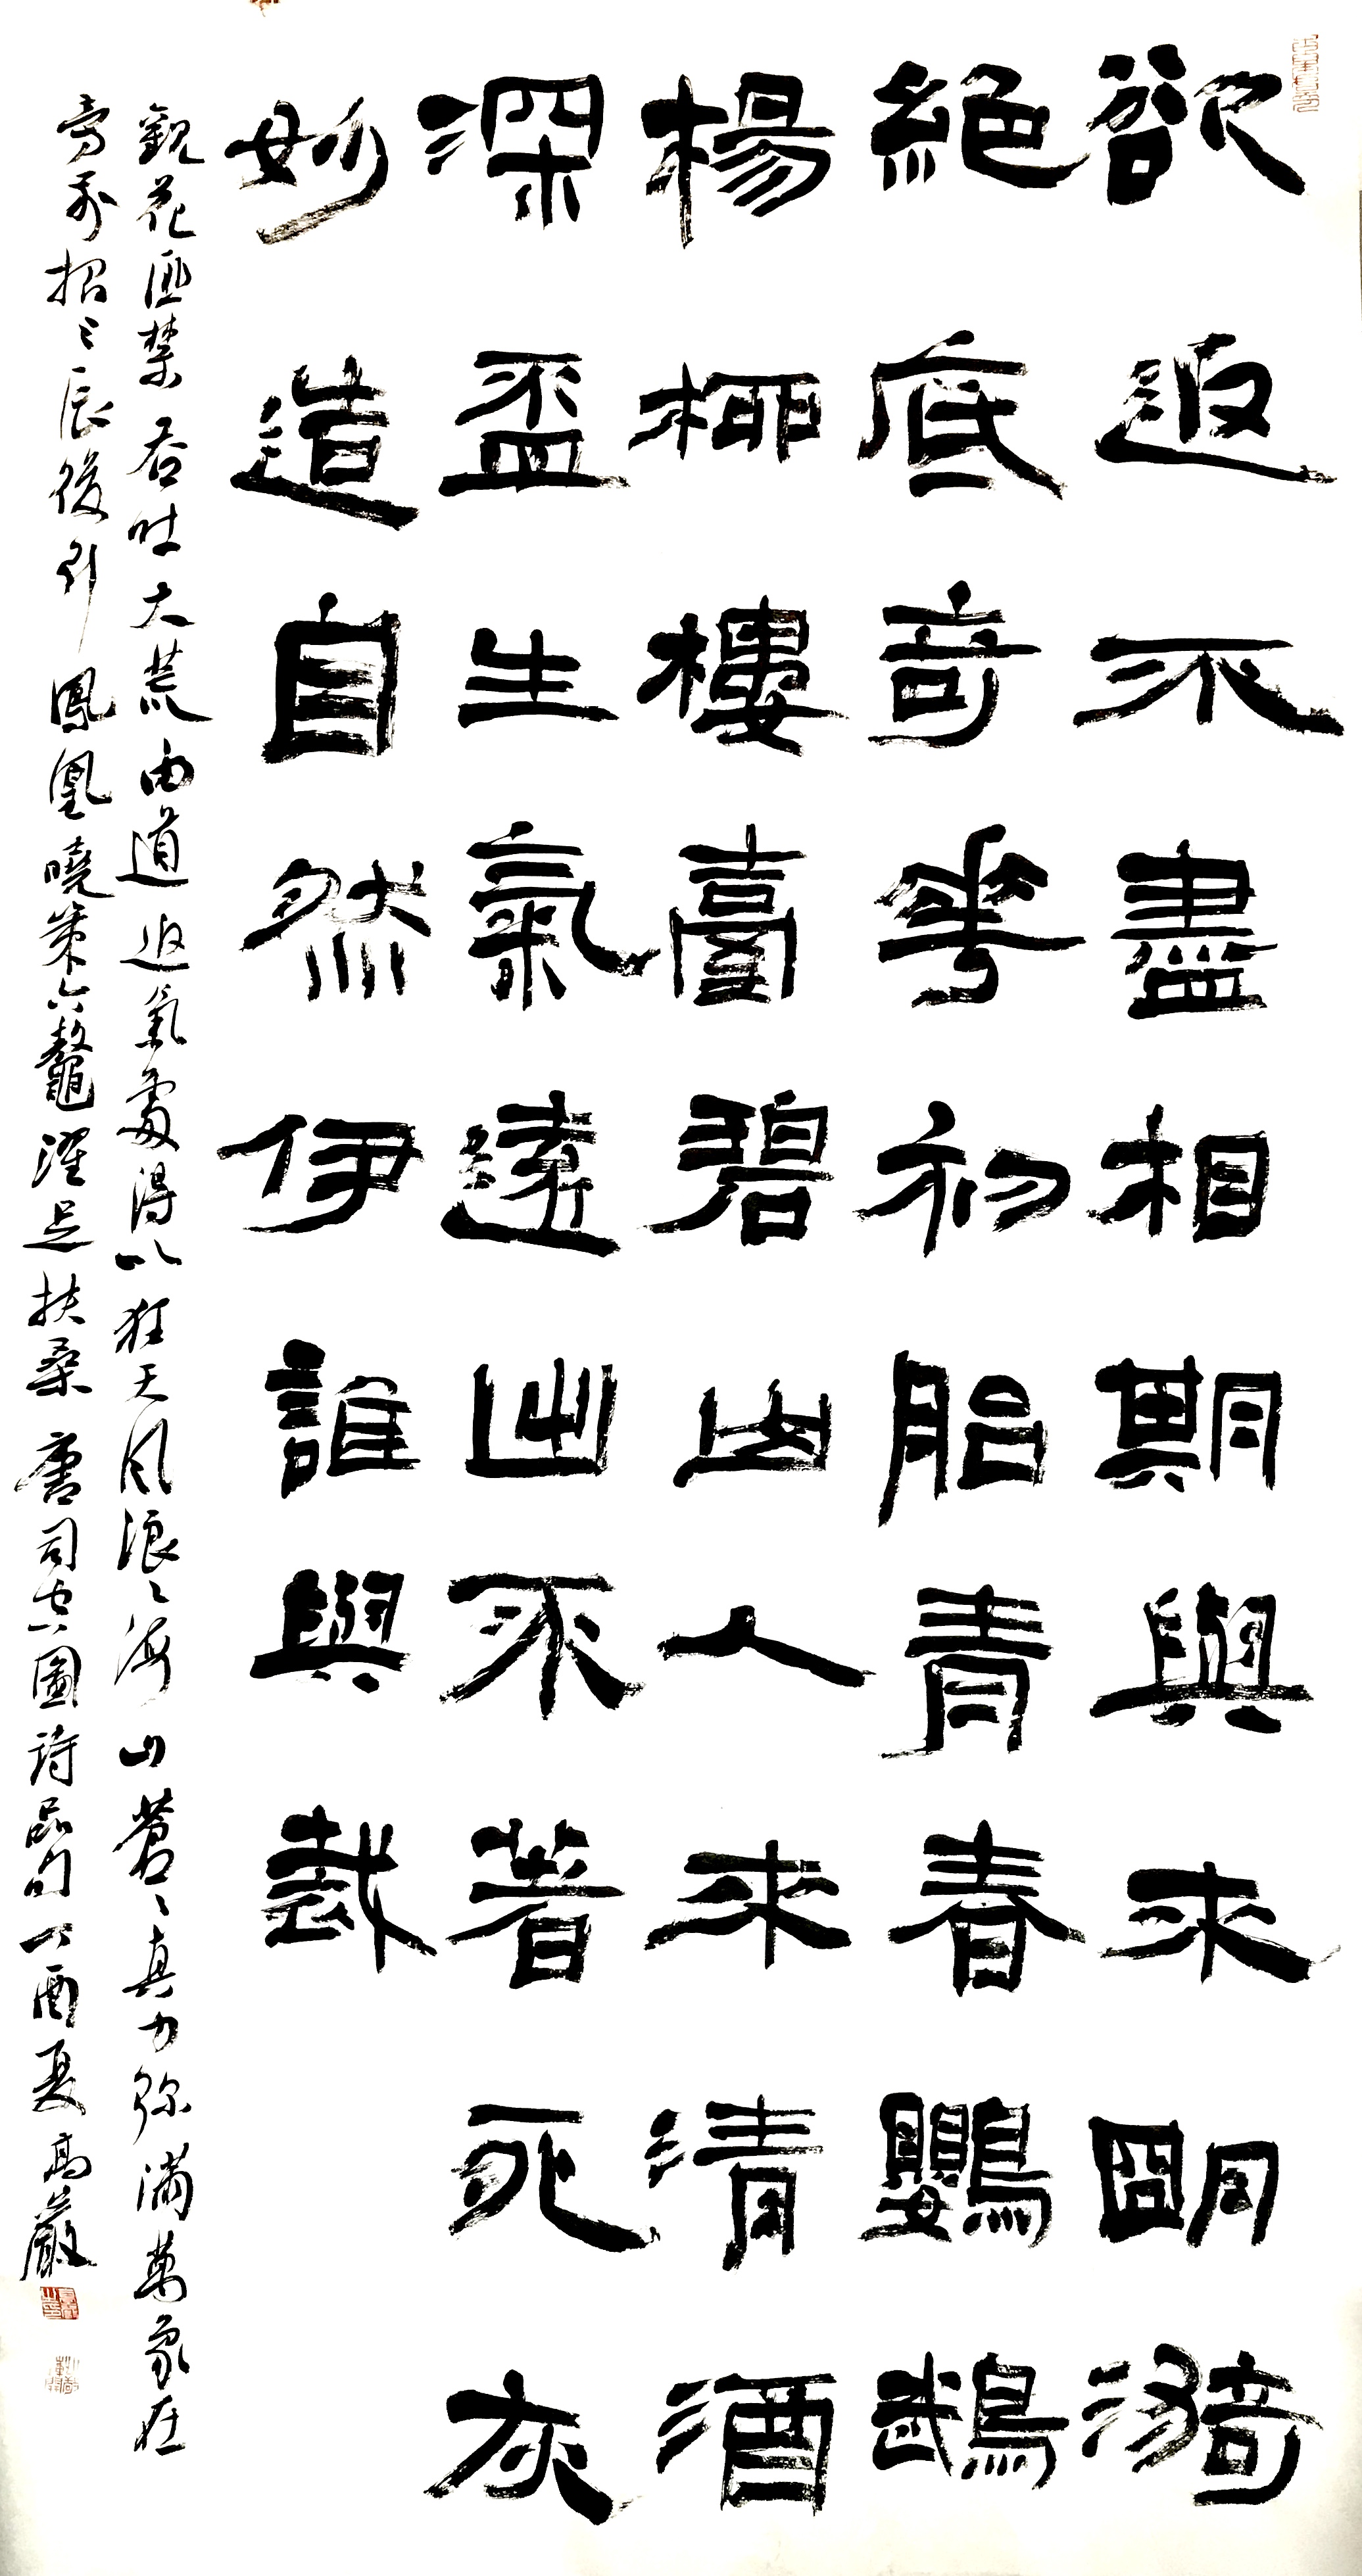 欲返不盡相期與來明漪
絕底奇華初胎青春鸚鵡
楊柳樓臺碧山人來清酒
深盃生氣遠出不著死灰
妙造自然伊誰與裁
觀花匪禁吞吐大荒由道返氣處得以狂天風浪〻海山蒼〻真力弥滿萬象在
旁前招三辰後引鳳凰曉策六鼇濯足扶桑 唐司空圖詩品句 丁酉夏高巖